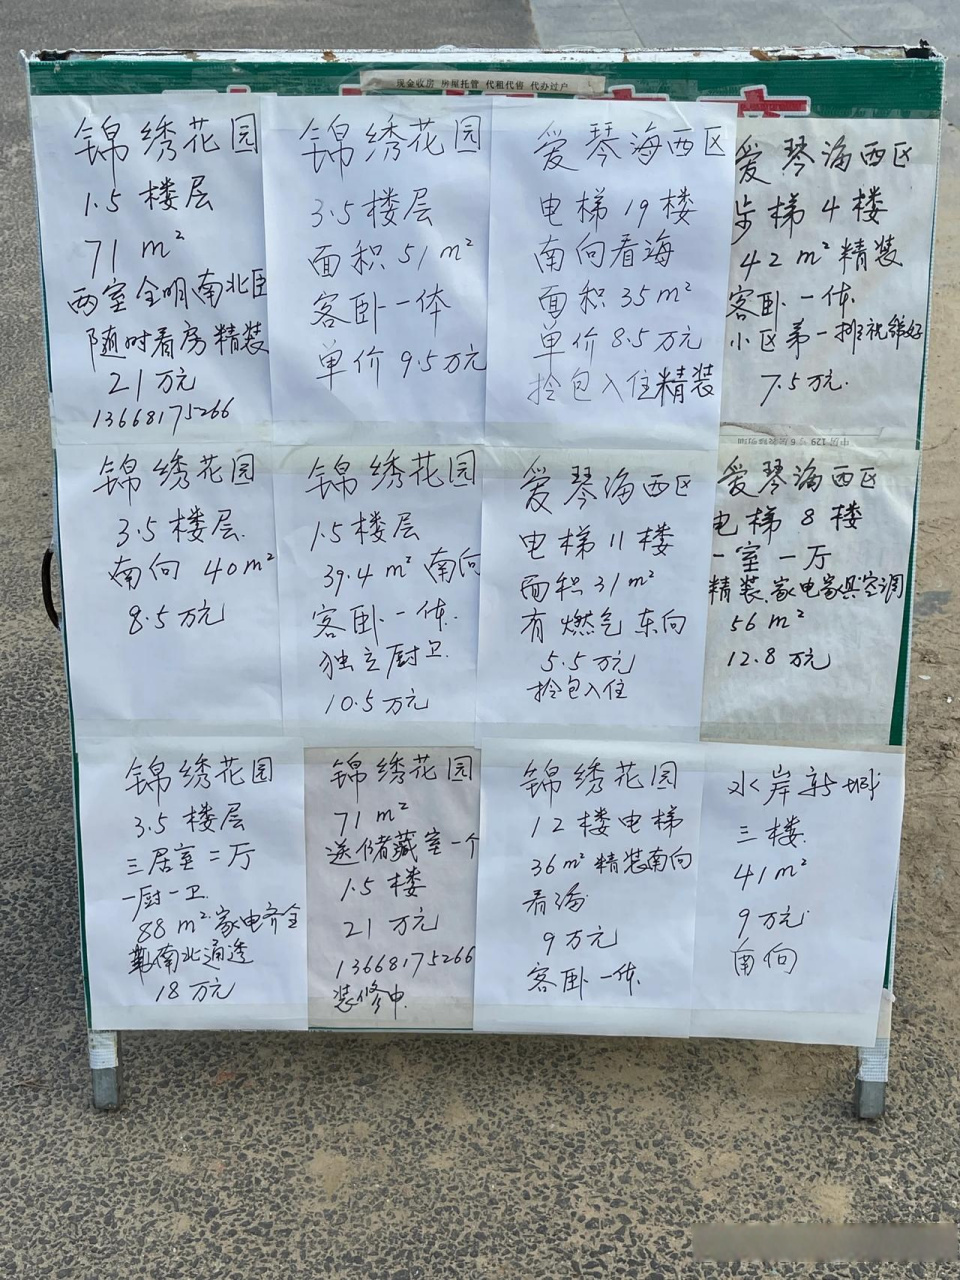 现金收房 房屋托管 代租代售 代办过户
锦绣花园
1.5楼层
71m²
两室全明南北
随时看房精装
21万元
13668175266
锦绣花园
3.5楼层
面积51m²
客卧一体
单价9.5万元
爱琴海西区
电梯19楼
南向看海
面积35m²
单价8.5万元
拎包入住精装
爱琴海西区
步梯4楼
42m²精装
客卧一体
小区第一排
7.5万元.
锦绣花园
3.5楼层.
南向 40m²
8.5万元
锦绣花园
1.5楼层
39.4m²南向
客卧一体.
独立厨卫.
10.5万元
爱琴海西区
电梯11楼
面积31m²
有燃气 东向
5.5万元
拎包入住
爱琴海西区
电梯8楼
一室一厅
精装.家电家具空调
56m²
12.8万元
锦绣花园
3.5楼层
三居室二厅
一厨一卫.
88m².家电齐全
南北通透
18万元
锦绣花园
71m²
送储藏室一个
1.5楼
21万元
13668175266
装修中.
锦绣花园
12楼电梯
36m²精装南向
看海
9万元
客卧一体.
水岸新城
三楼.
41m²
9万元
南向